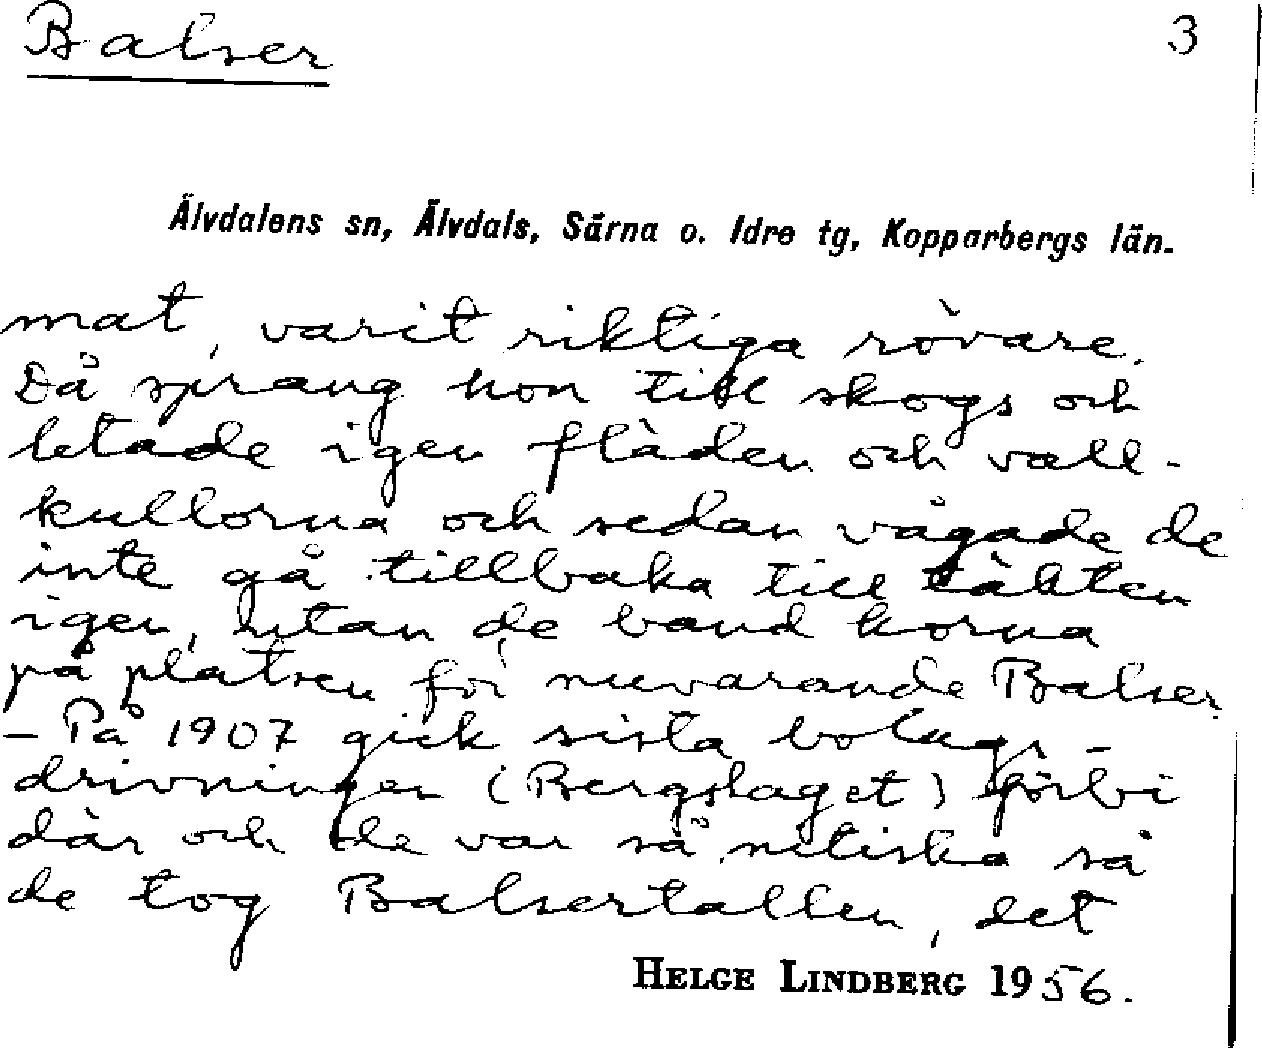 Balser
3
Älvdalens sn, Älvdals, Särna o. Idre tg, Kopparbergs län.
mat, varit riktiga rövare.
Då sprang hon till skogs och
letade igen flàden och vall-
kullorna och sedan vågade de
inte gå tillbaka till täkten
igen, utan de band korna
på platsen för nuvarande Balser.
- På 1907 gick sista bolags-
drivningen (Bergslaget) förbi
där och de var så nitiska så
de tog Balsertallen, det
HELGE LINDBERG 1956.